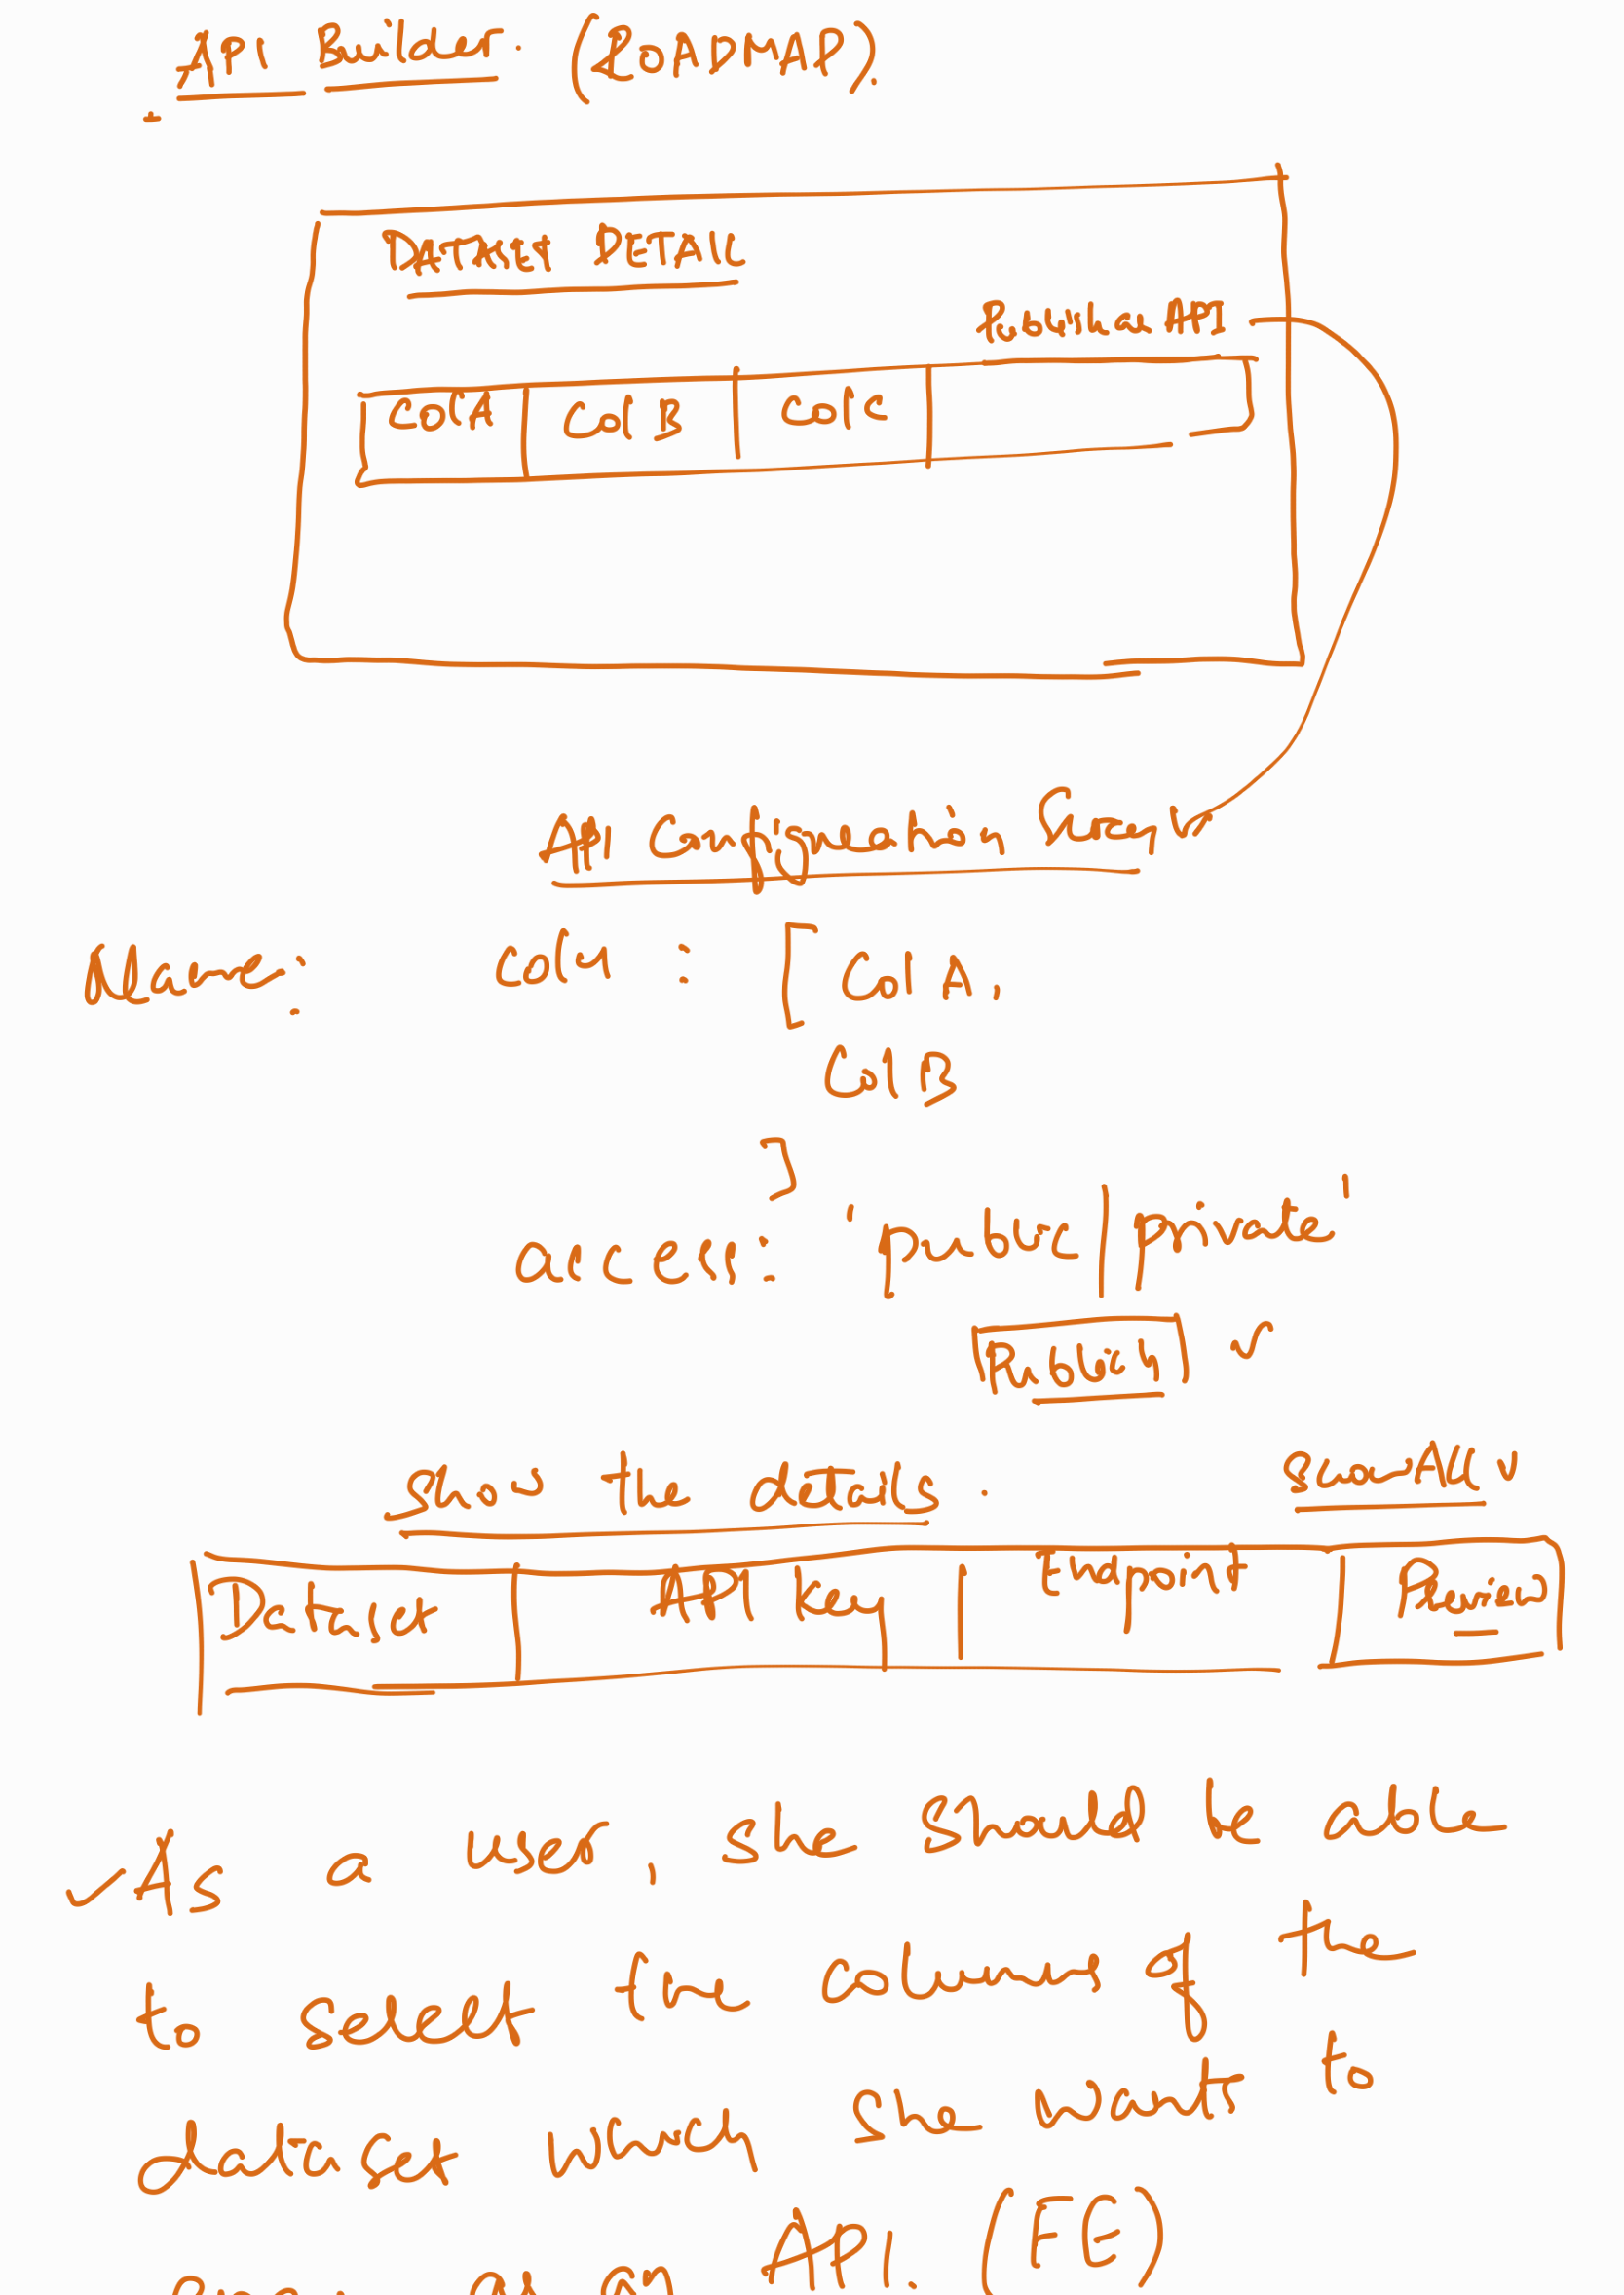 API Builder. (ROADMAP).
DATASET DETAIL
Publish API
Col A Col B Col C
API Configuration Screen
Name: cols : [ Col A,
Col B
]
access: 'public | private'
Publish
Show the details. Show-All
Dataset API Key Endpoint
As a user, she should be able
to select the columns of the
dataset which she wants to
API. (FE)